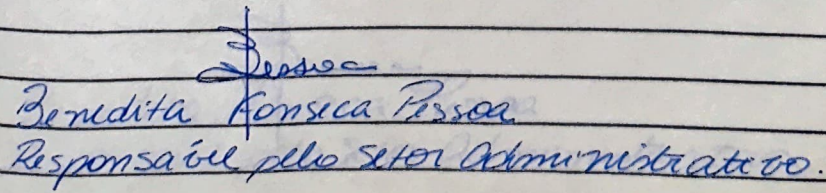 Pessoa
Benedita Fonseca Pessoa
Responsável pelo setor administrativo.